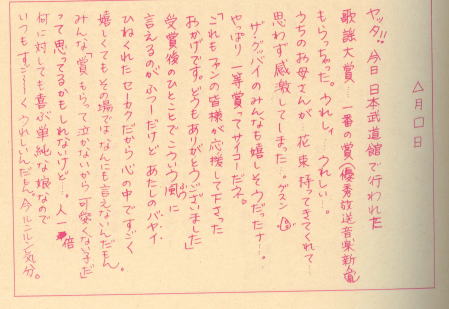 △月□日
ヤッタ!! 今日日本武道館で行われた
歌謡大賞…。一番の賞(優秀放送音楽新人賞)
もらっちゃった。うれしィ…。うれしい…。
うちのお母さんが…花束持ってきてくれて…
思わず感激してしまった…。グスン
ザ・グッバイのみんなも嬉しそうだったナー…。
やっぱり一等賞ってサイコーだネ。
「これもファンの皆様が応援して下さった
おかげです。どうもありがとうございました」
受賞後のひとことでこういう風に
言えるのがふつーだけどあたしのバヤイ、
ひねくれたセーカクだから心の中ですごく
嬉しくてもその場ではなんにも言えないんだもん。
みんな「賞もらって泣かないから可愛くない子だ」
って思ってるかもしれないけど…。人一倍
何に対しても喜ぶ単純な娘なので
いつもすごーーくうれしいんだもん。今ルンルン気分。